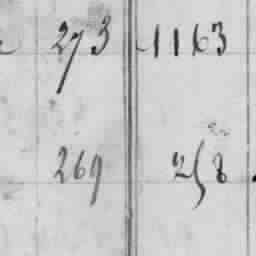 273 1163
269 258